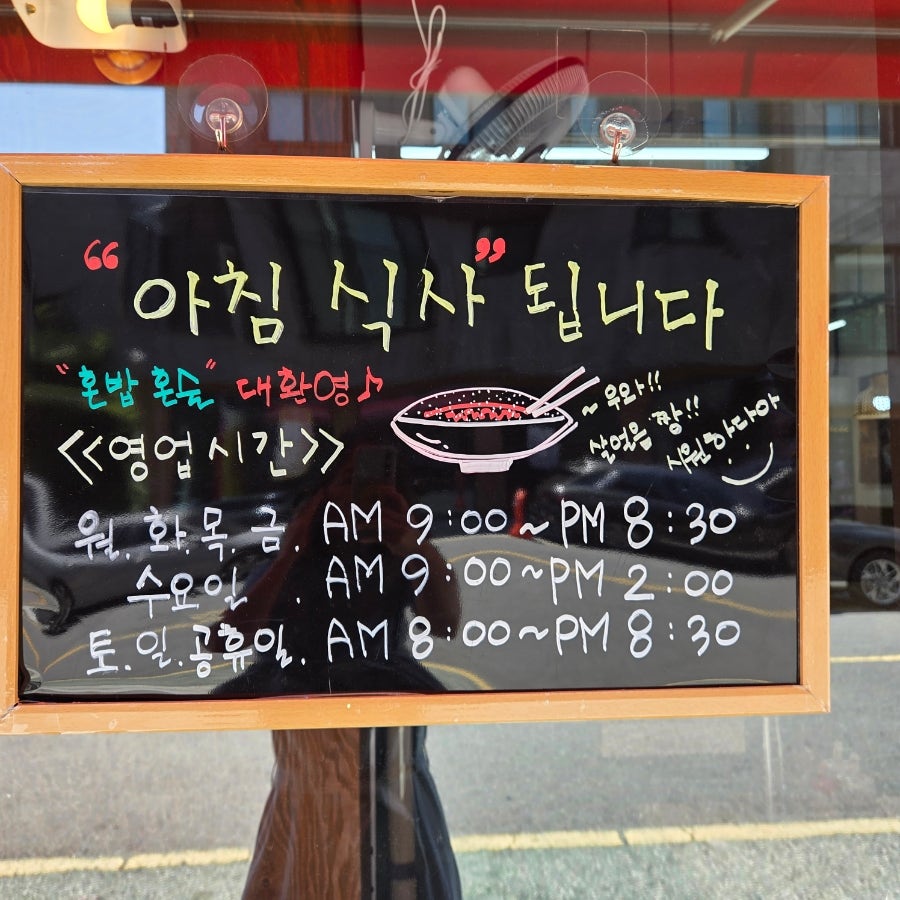 “아침 식사” 됩니다
"혼밥 혼술" 대환영♪
~ 우와!!
살얼음 짱!!
시원하다아
<<영업시간>>
월.화.목.금. AM 9:00~PM 8:30
수요일 . AM 9:00~PM 2:00
토.일.공휴일. AM 8:00~PM 8:30